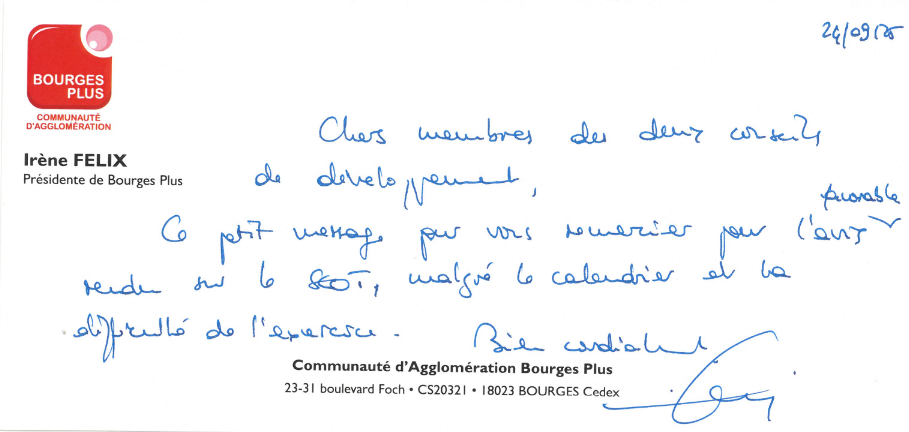 24/09/25
BOURGES
PLUS
COMMUNAUTÉ
D'AGGLOMÉRATION
Irène FELIX
Présidente de Bourges Plus
Chers membres des deux conseils
de développement,
favorable
Ce petit message pour vous remercier pour l'avis
rendu sur le SCOT, malgré le calendrier et la
difficulté de l'exercice.
Bien cordialement
Communauté d'Agglomération Bourges Plus
23-31 boulevard Foch • CS20321 • 18023 BOURGES Cedex